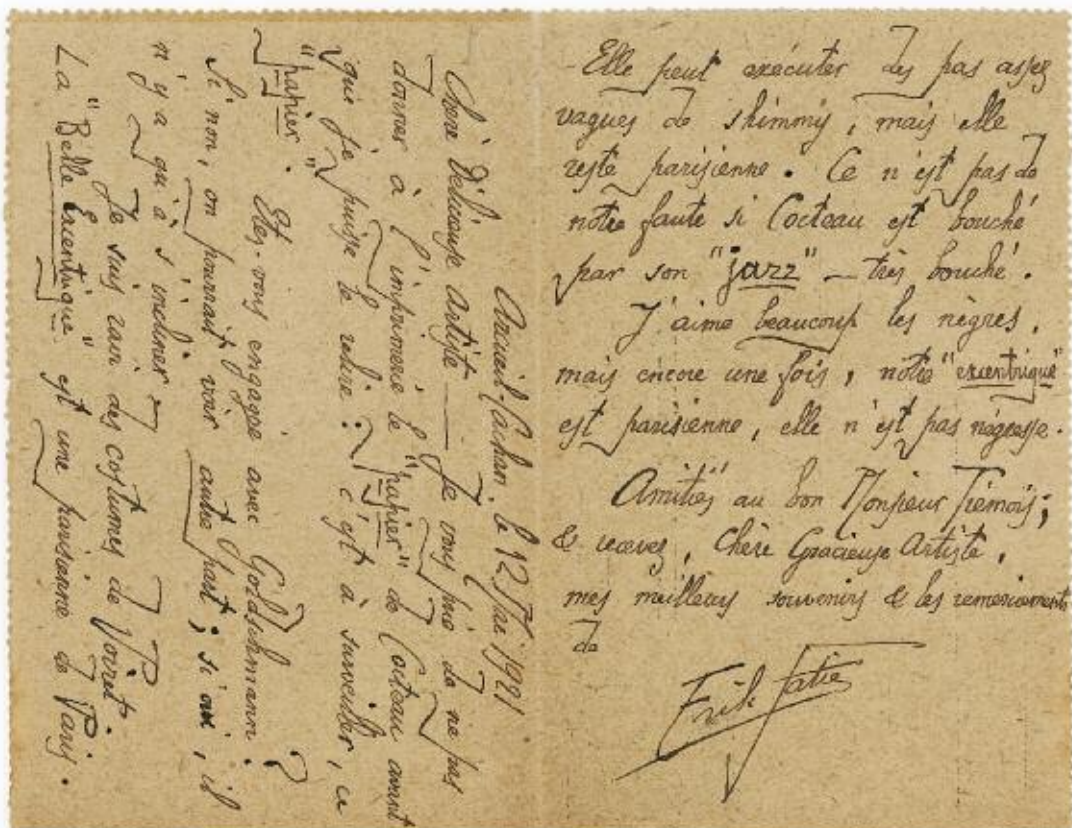 Arcueil-Cachan, le 12 Mai 1921
Chère Délicieuse Artiste — Je vous prie de ne pas
donner à l'imprimerie le "papier" de Cocteau avant
que je puisse le relire : c'est à surveiller, ce
"papier". Etes-vous engagée avec Goldschmann ?
Si non, on pourrait voir autre part ; si oui, il
n'y a qu'à s'incliner.
Je suis ravi des costumes de Poiret.
La "Belle Excentrique" est une parisienne de Paris.
Elle peut exécuter des pas assez
vagues de shimmy, mais elle
reste parisienne. Ce n'est pas de
notre faute si Cocteau est bouché
par son "jazz" — très bouché.
J'aime beaucoup les nègres,
mais encore une fois, notre "excentrique"
est parisienne, elle n'est pas négresse.
Amitiés au bon Monsieur Trémois ;
& recevez, Chère Gracieuse Artiste,
mes meilleurs souvenirs & les remerciements
de
Erik Satie